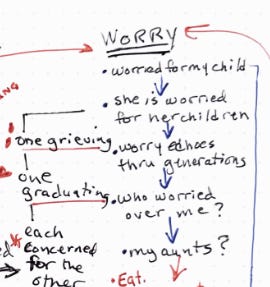 WORRY
• worried for my child
• she is worried
for her children
• worry echoes
thru generations
• who worried
over me?
• my aunts?
• Eat.
• one grieving
one
graduating
each
concerned
for the
other